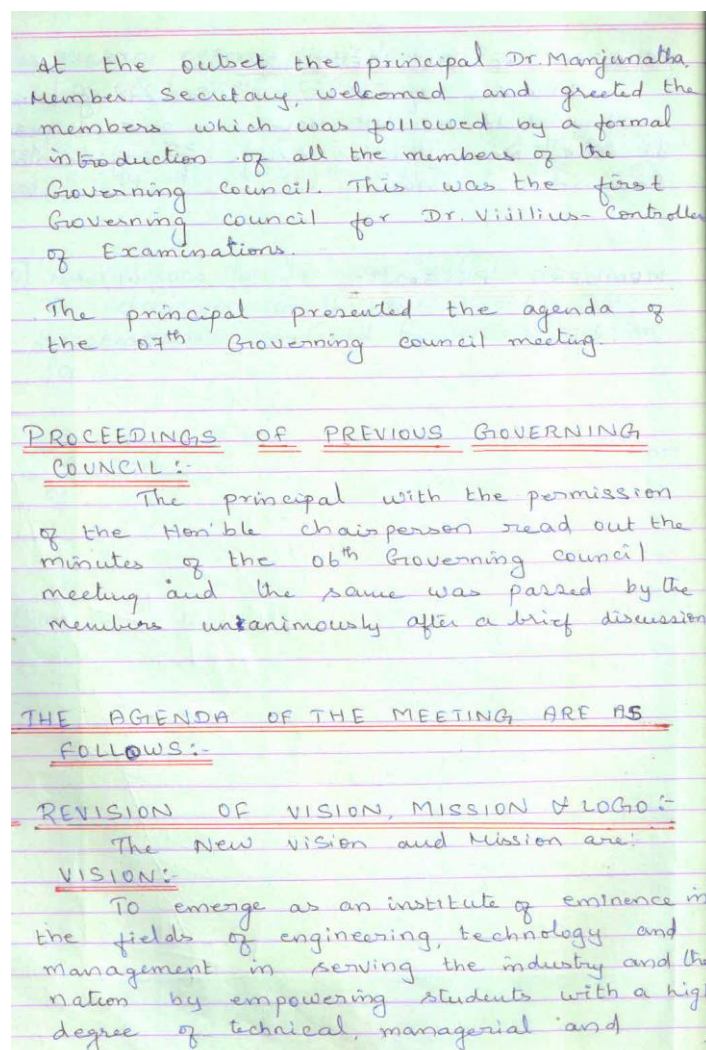 At the outset the principal Dr. Manjunatha,
Member Secretary, welcomed and greeted the
members which was followed by a formal
introduction of all the members of the
Governing Council. This was the first
Governing council for Dr. Vijilius - Controller
of Examinations.
The principal presented the agenda of
the 07th Governing council meeting.
PROCEEDINGS OF PREVIOUS GOVERNING
COUNCIL :-
The principal with the permission
of the Hon'ble chairperson read out the
minutes of the 06th Governing council
meeting and the same was passed by the
members unanimously after a brief discussion
THE AGENDA OF THE MEETING ARE AS
FOLLOWS :-
REVISION OF VISION, MISSION & LOGO :-
The New vision and Mission are:
VISION :-
To emerge as an institute of eminence in
the fields of engineering, technology and
management in serving the industry and the
nation by empowering students with a high
degree of technical, managerial and